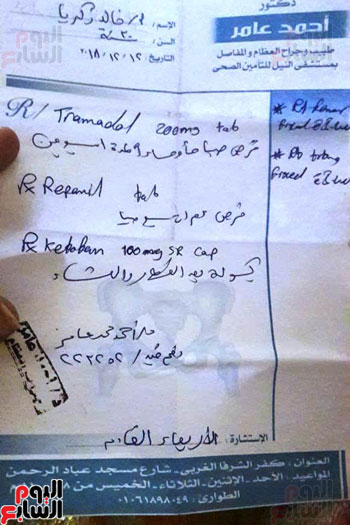 دكتور
أحمد عامر
طبيب وجراح العظام والمفاصل
بمستشفى النيل للتأمين الصحى
الإسم : م/ خالد زكريا
السن : ٣٠
التاريخ : ٢٠١٨/١٢/١٢
اليوم السابع
R/ Tramadol 200mg tab
قرص صباحا ومساء لمدة اسبوعين
Rx tab
قرص يوميا
Rx Ketofan 100mg SR Cap
كبسولة بعد الفطار والعشاء
د/ أحمد محمد عامر
رقم قيد / ٢٢٣٢٥٢
الإستشارة : الأربعاء القادم
العنوان : كفر الشرفا الغربى - شارع مسجد عباد الرحمن
المواعيد : الأحد - الاثنين - الثلاثاء - الخميس من
الطوارئ : ٠١٠٦١٨٩٨٠٤٩
اليوم السابع